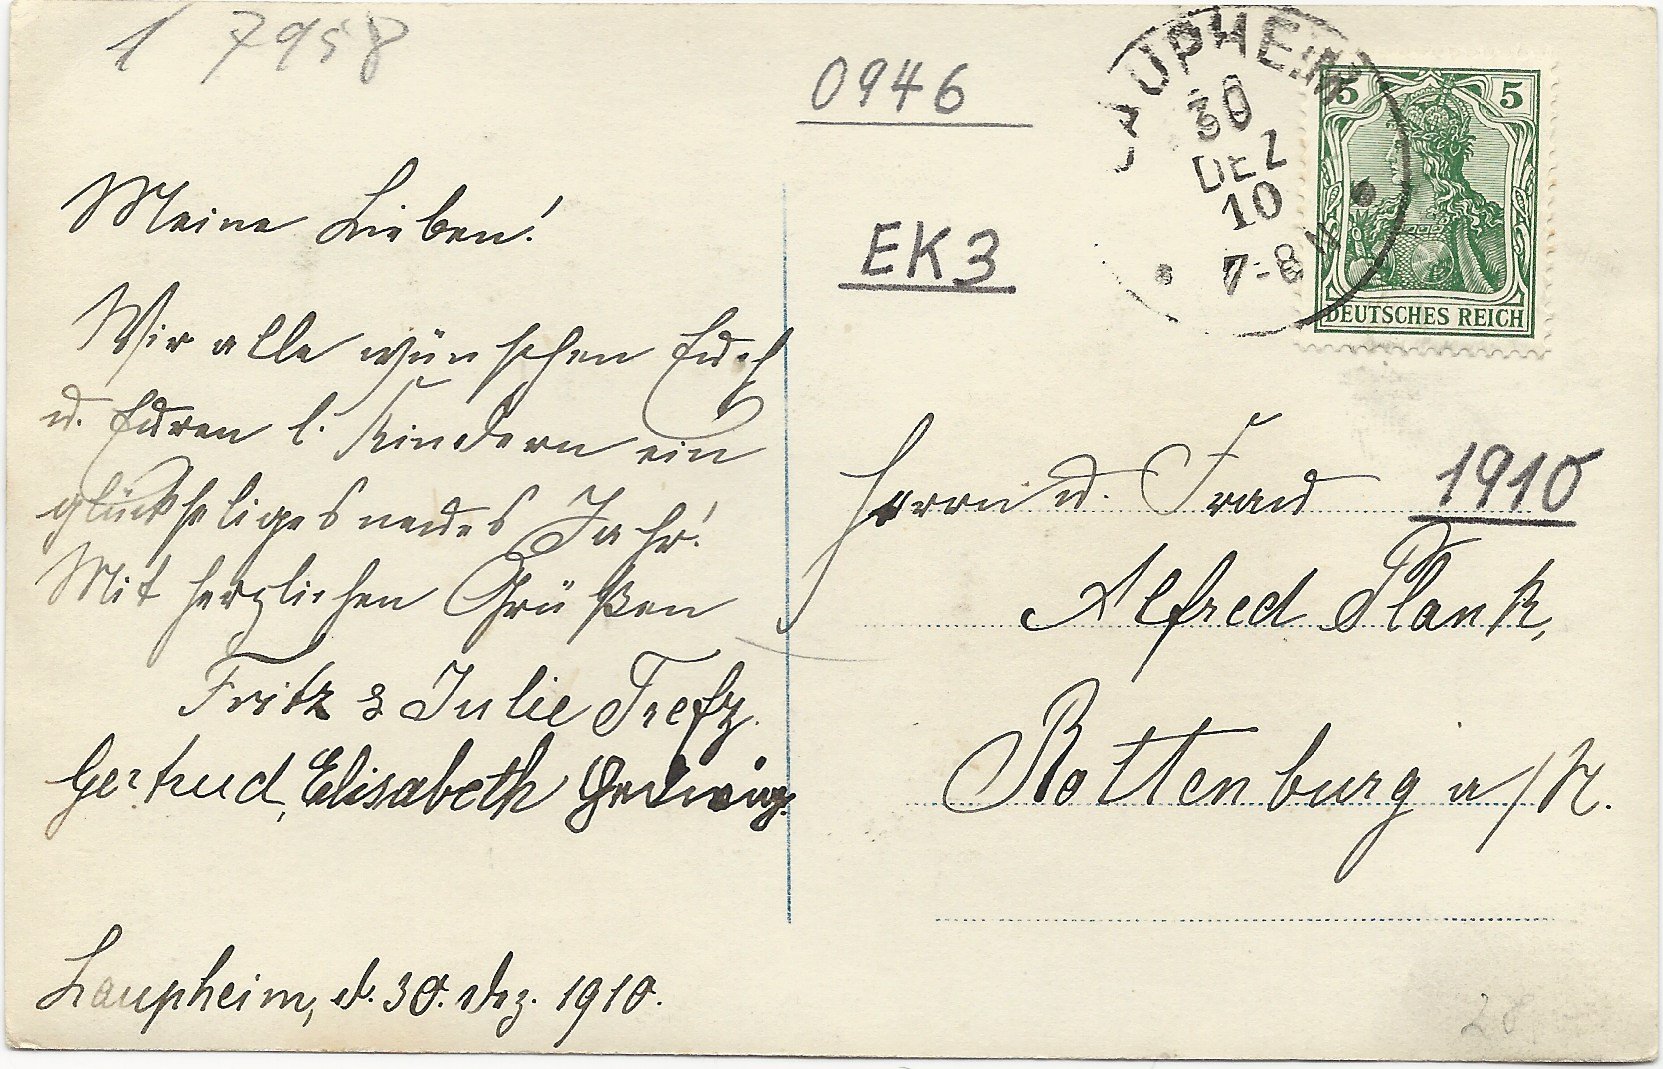 1 7958
0946
EK3
LAUPHEIM
30
DEZ
10
7-8 N
5 5
DEUTSCHES REICH
Meine Lieben!
Wir alle wünschen Euch
u. Euren l. Kindern ein
glückseliges neues Jahr!
Mit herzlichen Grüßen
Fritz & Julie Trefz.
Gertrud, Elisabeth Hedwig.
Laupheim, d. 30. Dez. 1910.
1910
Herrn u. Frau
Alfred Plank,
Rottenburg a/N.